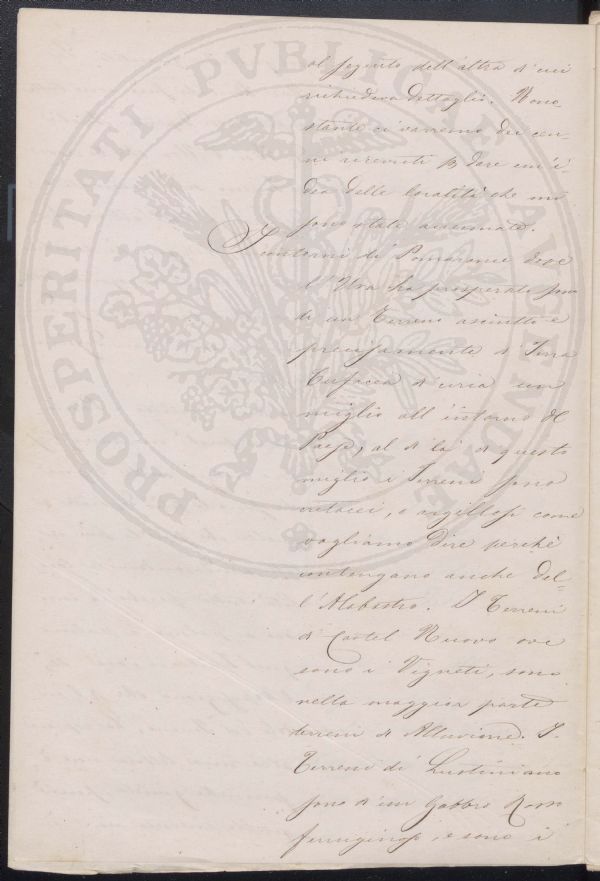 PROSPERITATI PVBLICAE AVGENDAE
al seguito dell'altra d'cui
richiedeva dettaglj. Nono
stante ci varremo dei cen-
ni ricevuti p dare un'i-
dea delle località che mi
sono state accennate.
I contorni di Pomarance dove
l'Uva ha prosperato sono
di un Terreno asciutto e
precisamente d Terra
Tufacea d'circa un
miglio all'intorno del
Paese, al d la' d questo
miglio i Terreni sono
cretacei, o argillosi come
vogliamo dire perchè
contengano anche del-
l'Alabastro. I Terreni
d Castel Nuovo ove
sono i Vigneti, sono
nella maggior parte
terreni d Alluvione. I
Terreni di Lustiniano
sono d'un Gabbro Rosso
ferruginoso, e sono i